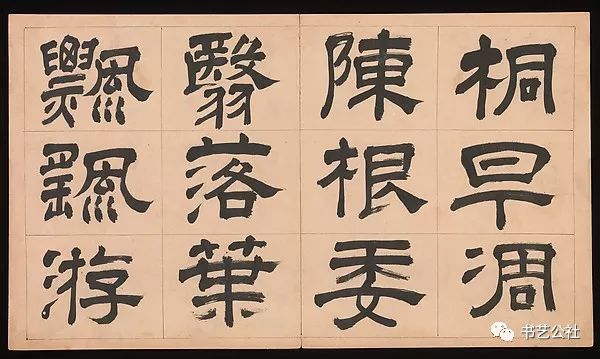 桐早凋
陳根委
翳落葉
飄颻游
书艺公社